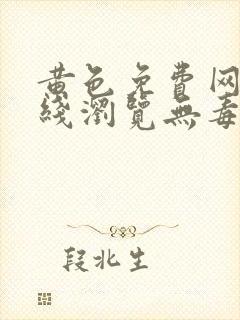 黄色免費网
綫瀏覽無毒
段北生